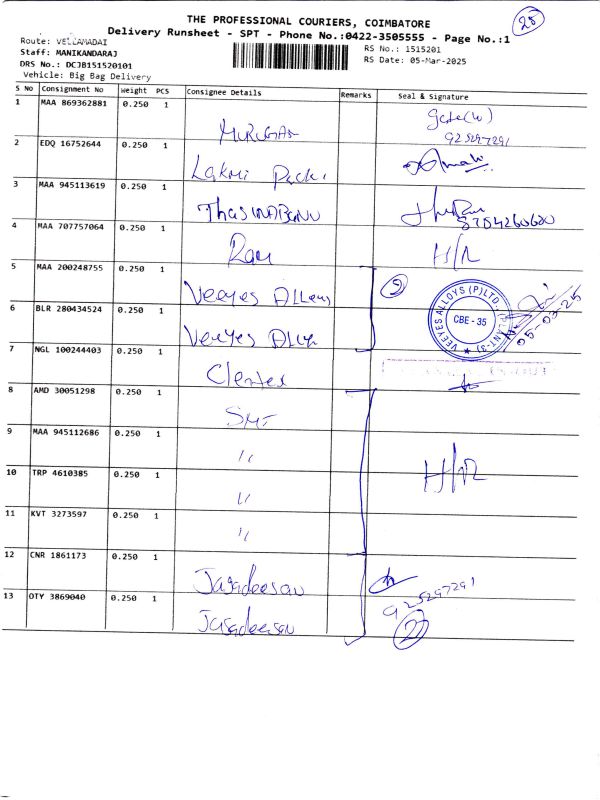 THE PROFESSIONAL COURIERS, COIMBATORE
25
Delivery Runsheet - SPT - Phone No.:0422-3505555 - Page No.:1
Route: VELLAMADAI
RS No.: 1515201
Staff: MANIKANDARAJ
RS Date: 05-Mar-2025
DRS No.: DCJB151520101
Vehicle: Big Bag Delivery
S No Consignment No Weight PCS Consignee Details Remarks Seal & Signature
1 MAA 869362881 0.250 1 MURUGAN
925297291
2 EDQ 16752644 0.250 1 Lakmi
3 MAA 945113619 0.250 1
4 MAA 707757064 0.250 1 Ram H/R
5 MAA 200248755 0.250 1 Veeyes Alloys
VEEYES ALLOYS (P) LTD. (PLANT-3)
CBE - 35
05-03-25
6 BLR 280434524 0.250 1 Veeyes
7 NGL 100244403 0.250 1
8 AMD 30051298 0.250 1 SMT
9 MAA 945112686 0.250 1 " H/R
10 TRP 4610385 0.250 1 "
11 KVT 3273597 0.250 1 "
12 CNR 1861173 0.250 1 Jagadeesan
925297291
13 OTY 3869040 0.250 1 Jagadeesan
2